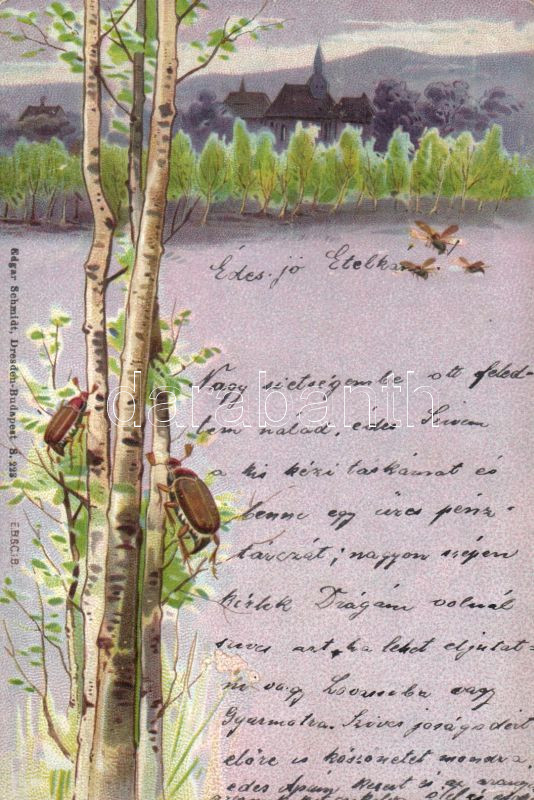 Édes jó Etelkám
Nagy sietségembe ott feled-
tem nálad, édes Szivem
a kis kézi táskámat és
benne egy üres pénz-
tárczát; nagyon szépen
kérlek Drágám volnál
szives azt, ha lehet eljutat-
ni vagy vagy
Gyarmatra. Szives jóságodért
előre is köszönetet mondva,
édes Apám
Edgar Schmidt, Dresden-Budapest S. 223
darabanth